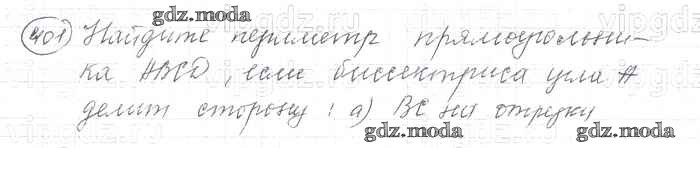 gdz.moda gdz.moda
401 Найдите периметр прямоугольни-
ка ABCD, если биссектриса угла A
делит сторону: а) BC на отрезки
gdz.moda gdz.moda